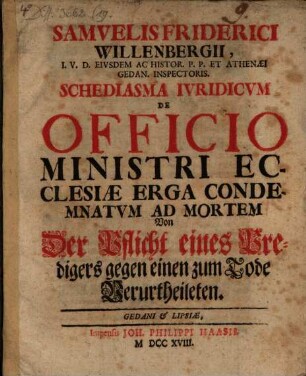 SAMVELIS FRIDERICI
WILLENBERGII,
I. V. D. EIVSDEM AC HISTOR. P. P. ET ATHENÆI
GEDAN. INSPECTORIS.
SCHEDIASMA IVRIDICVM
DE
OFFICIO
MINISTRI EC-
CLESIÆ ERGA CONDE-
MNATVM AD MORTEM
Von
Der Pflicht eines Pre-
digers gegen einen zum Tode
Verurtheileten.
GEDANI & LIPSIÆ,
Impensis JOH. PHILIPPI HAASII.
M DCC XVIII.